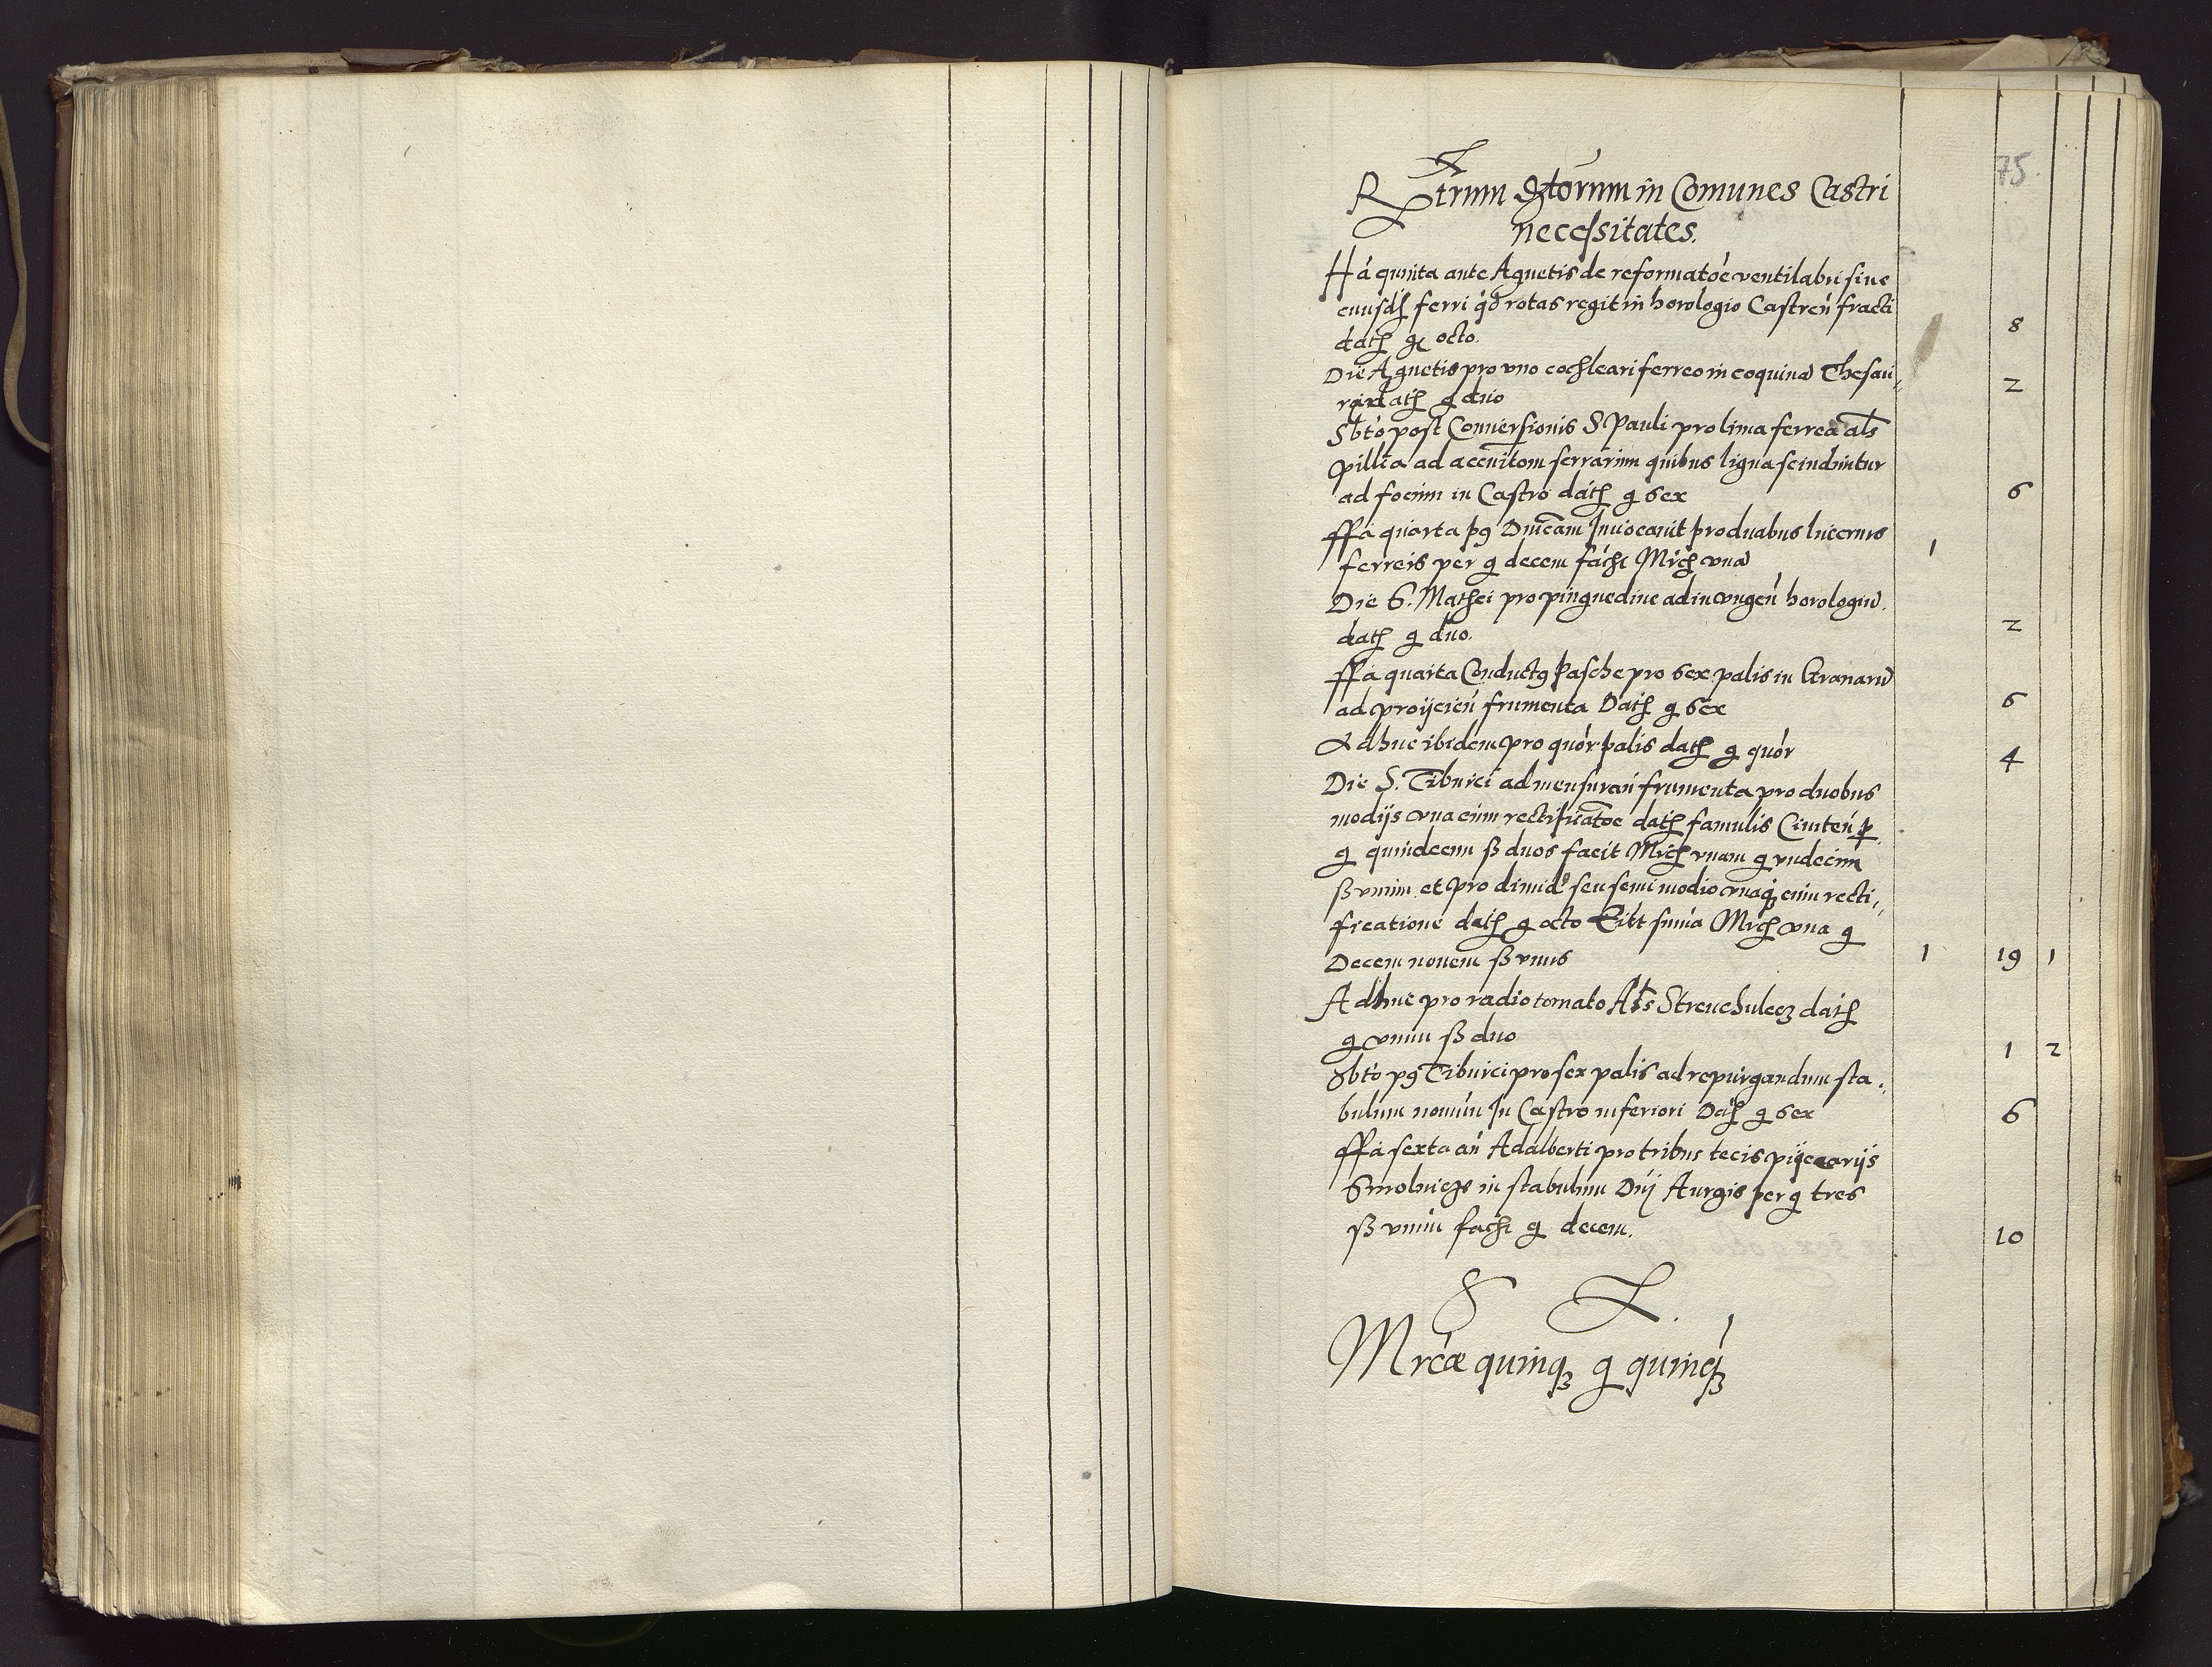 75.
Rtrum Extorum in Comunes Castri
necessitates.
ffa quinta ante Agnetis de reformatoe ventilabri siue
eiusdem ferri qd rotas regit in horologio Castren fracti
dath g octo. 8
Die Agnetis pro vno cochleari ferreo in coquina Thesau„
rari dath g duo 2
Sbto post Conuersionis S Pauli pro lima ferrea als
pilka ad accuitom serrarum quibus ligna scinduntur
ad focum in Castro dath g sex 6
ffa quarta pg Dnicam Inuocauit pro duabus lucernis
ferreis per g decem facht Mrch vna 1
Die S. Mathei pro pinguedine ad invngen horologiu.
dath g duo. 2
ffa quarta Conductg Pasche pro sex palis in Granariu
ad proijcien frumenta Dath g sex 6
Adhuc ibidem pro quor palis dath g quor 4
Die S. Tiburci ad mensuran frumenta pro duobus
modijs vna cum rectificatoe dath famulis Ciuiten p
g quindecim ß duos facit Mrch vnam g vndecim
ß vnum et pro dimid seu semi modio vnaq cum recti„
ficatione dath g octo Eitt suma Mrch vna g
Decem nouem ß vnus 1 19 1
Adhuc pro radio tornato Als Strenchulecz dath
g vnum ß duo 1 2
Sbto pg Tiburci pro sex palis ad repurgandum sta„
bulum nouum In Castro inferiori Dath g sex 6
ffa sexta an Adalberti pro tribus tecis piyccarijs
Smolnicze in stabulum Dnj Aurgis per g tres
ß vnum facht g decem. 10
S L.
Mrcae quinq g quinq